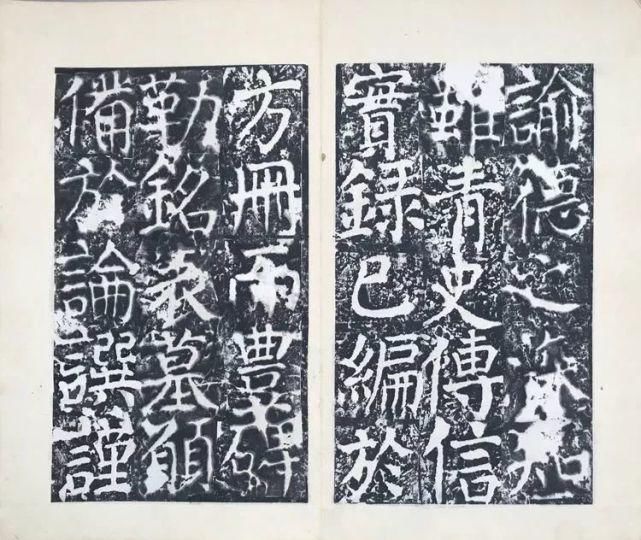 諭德之
雖青史傳信
實錄已編於
方冊而豐碑
勒銘表墓願
備於論譔謹